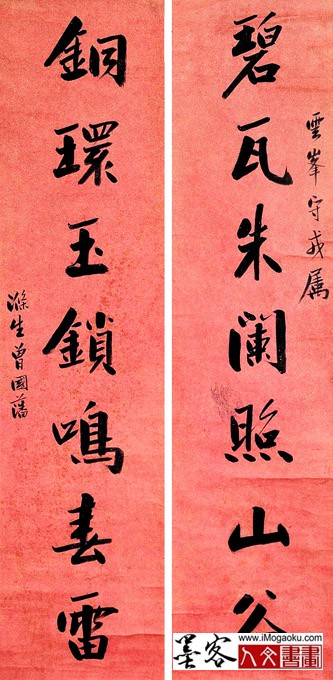 雲峯守戎属
碧瓦朱闌照山谷
銅環玉鎖鳴春雷
滌生曾國藩
www.iMogaoku.com
墨客人文書畫